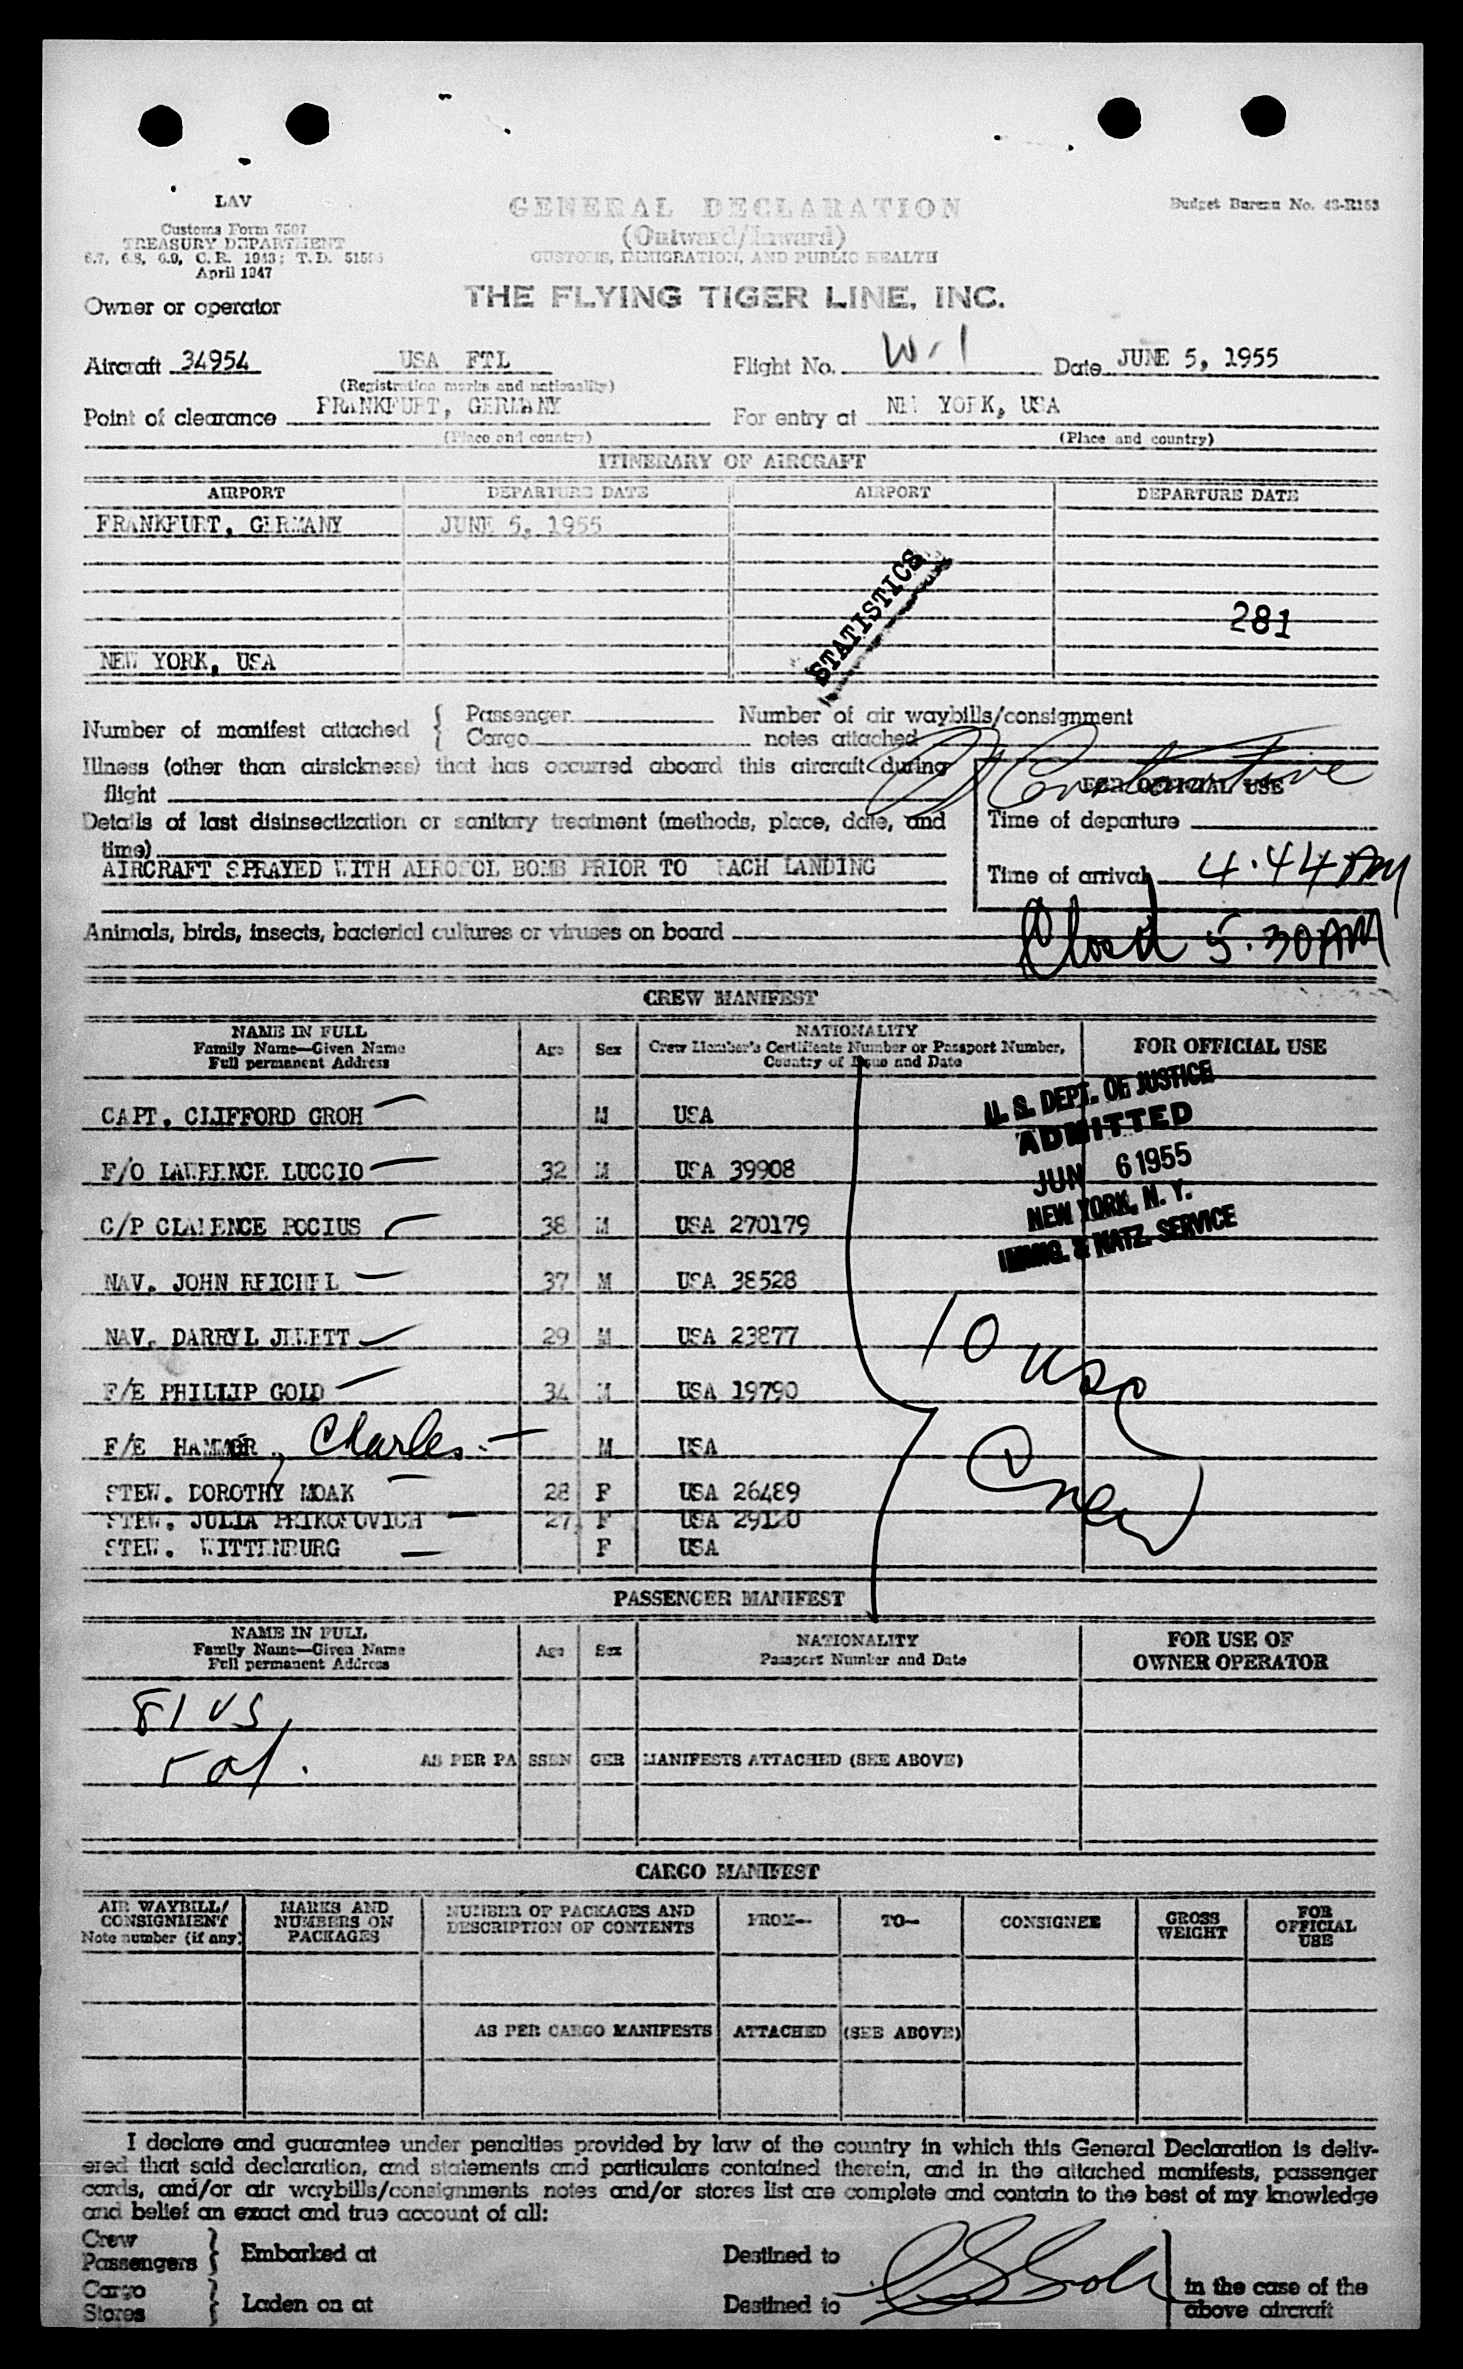 LAV
Customs Form 7507
TREASURY DEPARTMENT
6.7, 6.8, 6.9, C.R. 1943; T.D.
April 1947
GENERAL DECLARATION
(Outward/Inward)
CUSTOMS, IMMIGRATION, AND PUBLIC HEALTH
Budget Bureau No.
Owner or operator
THE FLYING TIGER LINE, INC.
Aircraft 34954 USA FTL Flight No. W-1 Date JUNE 5, 1955
(Registration marks and nationality)
Point of clearance FRANKFURT, GERMANY For entry at NEW YORK, USA
(Place and country) (Place and country)
ITINERARY OF AIRCRAFT
AIRPORT DEPARTURE DATE AIRPORT DEPARTURE DATE
FRANKFURT, GERMANY JUNE 5, 1955
STATISTICS
281
NEW YORK, USA
Number of manifest attached { Passenger Number of air waybills/consignment
Cargo notes attached
Illness (other than airsickness) that has occurred aboard this aircraft during
flight
FOR OFFICIAL USE
Details of last disinsectization or sanitary treatment (methods, place, date, and
time)
Time of departure
AIRCRAFT SPRAYED WITH AEROSOL BOMB PRIOR TO EACH LANDING
Time of arrival 4.44 AM
Animals, birds, insects, bacterial cultures or viruses on board
Closed 5.30 AM
CREW MANIFEST
NAME IN FULL
Family Name—Given Name
Full permanent Address
Age Sex
NATIONALITY
Crew Member's Certificate Number or Passport Number,
Country of Issue and Date
FOR OFFICIAL USE
U. S. DEPT. OF JUSTICE
ADMITTED
JUN 6 1955
NEW YORK, N. Y.
IMMIG. & NATZ. SERVICE
CAPT. CLIFFORD GROH M USA
F/O LAWRENCE LUCCIO 32 M USA 39908
C/P CLARENCE POCIUS 38 M USA 270179
NAV. JOHN REICHEL 37 M USA 38528
NAV. DARRYL JEWETT 29 M USA 23877
F/E PHILLIP GOLD 34 M USA 19790
F/E HAMMER, Charles M USA
STEW. DOROTHY MOAK 28 F USA 26489
STEW. JULIA 27 F USA 29120
STEW. WITTENBURG F USA
10 USC
Crew
PASSENGER MANIFEST
NAME IN FULL
Family Name—Given Name
Full permanent Address
Age Sex
NATIONALITY
Passport Number and Date
FOR USE OF
OWNER OPERATOR
81 US
AS PER PASSENGER MANIFESTS ATTACHED (SEE ABOVE)
CARGO MANIFEST
AIR WAYBILL/
CONSIGNMENT
Note number (if any)
MARKS AND
NUMBERS ON
PACKAGES
NUMBER OF PACKAGES AND
DESCRIPTION OF CONTENTS
FROM—
TO—
CONSIGNEE
GROSS
WEIGHT
FOR
OFFICIAL
USE
AS PER CARGO MANIFESTS ATTACHED (SEE ABOVE)
I declare and guarantee under penalties provided by law of the country in which this General Declaration is deliv-
ered that said declaration, and statements and particulars contained therein, and in the attached manifests, passenger
cards, and/or air waybills/consignments notes and/or stores list are complete and contain to the best of my knowledge
and belief an exact and true account of all:
Crew
Passengers } Embarked at Destined to
Cargo
Stores } Laden on at Destined to
in the case of the
above aircraft